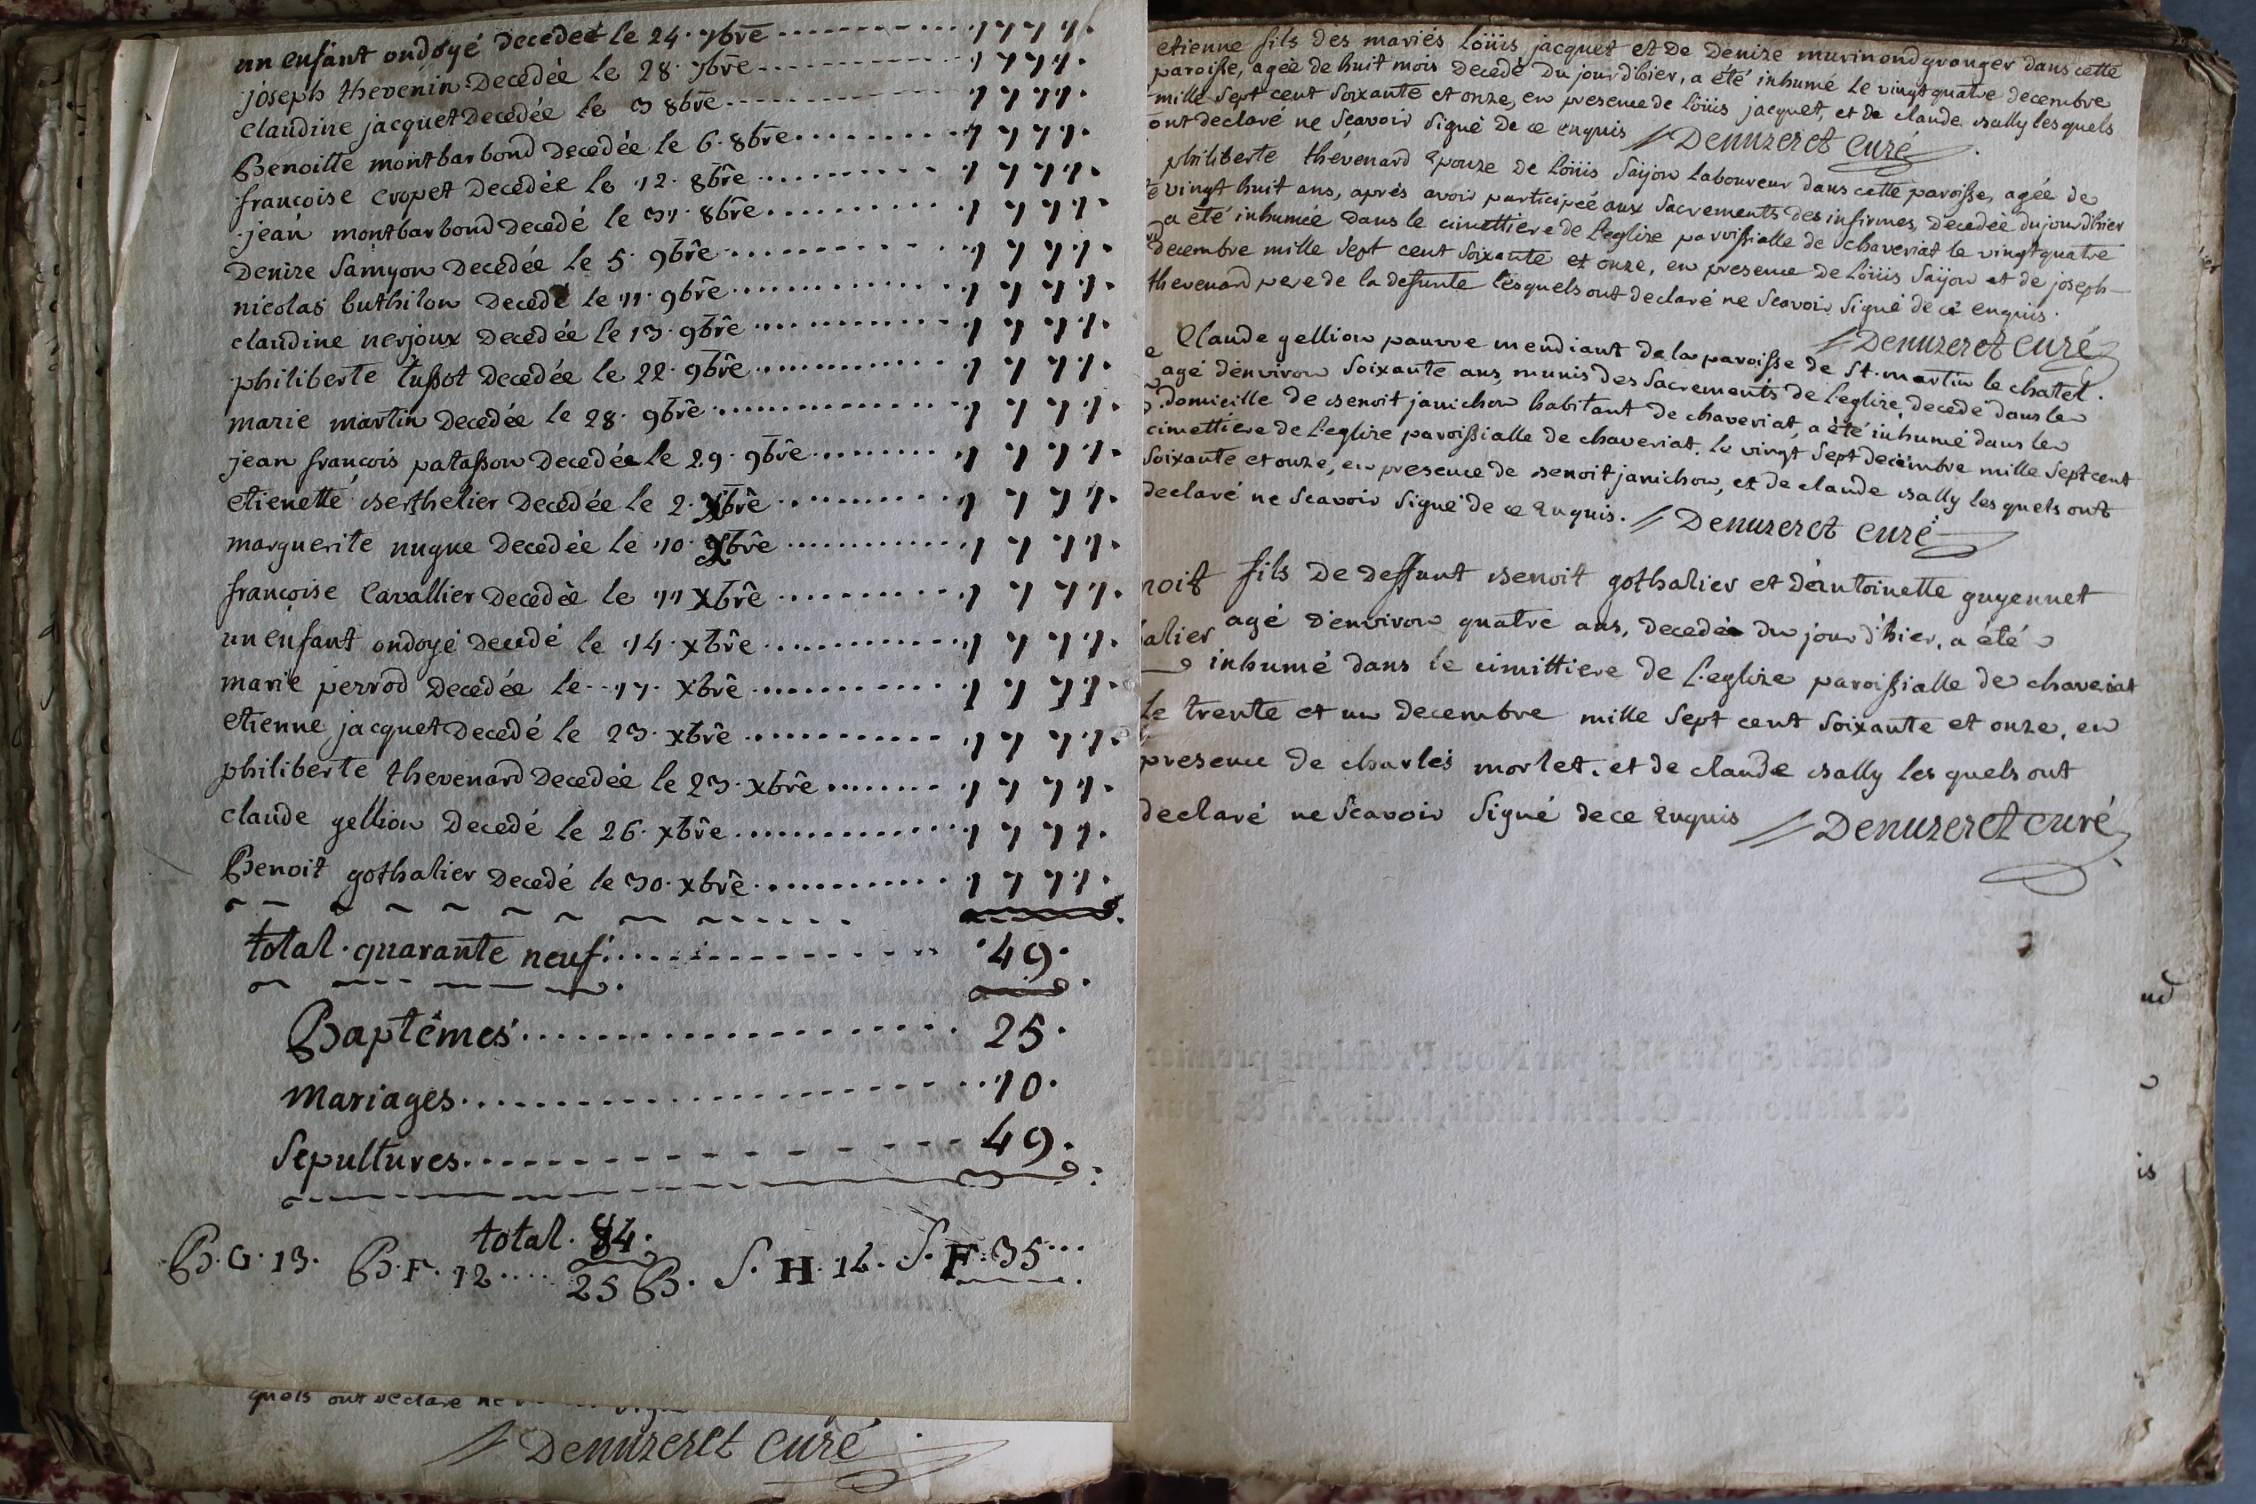 un enfant ondoyé decedet le 24. 7bre ........ 1771.
joseph thevenin decedée le 28. 7bre ........ 1771.
claudine jacquet decedée le 3 8bre ........ 1771.
Benoitte montbarbond decedée le 6. 8bre ........ 1771.
françoise cropet decedée le 12. 8bre ........ 1771.
jean montbarbond decedé le 31. 8bre ........ 1771.
Denize Samyon decedée le 5. 9bre ........ 1771.
nicolas buthilon decedé le 11. 9bre ........ 1771.
claudine nerjoux decedée le 13. 9bre ........ 1771.
philiberte tussot decedée le 22. 9bre ........ 1771.
marie martin decedée le 28. 9bre ........ 1771.
jean francois patasson decedée le 29. 9bre ........ 1771.
etienette berthelier decedée le 2. Xbre ........ 1771.
marguerite nugue decedée le 10. Xbre ........ 1771.
françoise Cavallier decedée le 11 Xbre ........ 1771.
un enfant ondoyé decedé le 14. xbre ........ 1771.
marie perrod decedée le 17. xbre ........ 1771.
etienne jacquet decedé le 23. xbre ........ 1771.
philiberte thevenard decedée le 23. xbre ........ 1771.
claude gellion decedé le 26. xbre ........ 1771.
Benoit gothalier decedé le 30. xbre ........ 1771.
total. quarante neuf ........ 49.
Baptêmes ........ 25.
Mariages ........ 10.
Sepultures ........ 49.
total. 84.
B. G. 13. B. F. 12 .... 25 B. S. H. 14. S. F. 35...
quels ont declaré ne
Denuzeret curé
etienne fils des mariés Loüis jacquet et de Denize murinond granger dans cette
paroisse, agée de huit mois decedé du jour d'hier, a été inhumé le vingt quatre decembre
mille sept cent soixante et onze, en presence de Loüis jacquet, et de claude bally lesquels
ont declaré ne scavoir signé de ce enquis Denuzeret Curé
philiberte thevenard Epouze de Loüis Saijon laboureur dans cette paroisse, agée de
vingt huit ans, aprés avoir participée aux Sacrements des infirmes, decedée du jour d'hier
a été inhumée dans le cimettiere de l'eglize paroissialle de chaveriat le vingt quatre
decembre mille sept cent soixante et onze, en presence de Loüis Saijon et de joseph
thevenard pere de la defunte lesquels ont declaré ne scavoir signé de ce enquis.
Denuzeret curé
Claude gellion pauvre mendiant de la paroisse de St. martin le chatel.
agé d'environ soixante ans, munis des Sacrements de l'eglize, decedé dans le
domicille de benoit janichon habitant de chaveriat, a été inhumé dans le
cimettiere de l'eglize paroissialle de chaveriat. le vingt sept decembre mille sept cent
soixante et onze, en presence de benoit janichon, et de claude bally les quels ont
declaré ne scavoir signé de ce Enquis. Denuzeret curé
noit fils de deffunt benoit gothalier et d'antoinette guyennet
alier agé d'environ quatre ans, decedée du jour d'hier, a été
inhumé dans le cimittiere de l'eglize paroissialle de chaveriat
le trente et un decembre mille sept cent soixante et onze, en
presence de charles morlet, et de claude bally les quels ont
declaré ne scavoir signé de ce Enquis Denuzeret curé